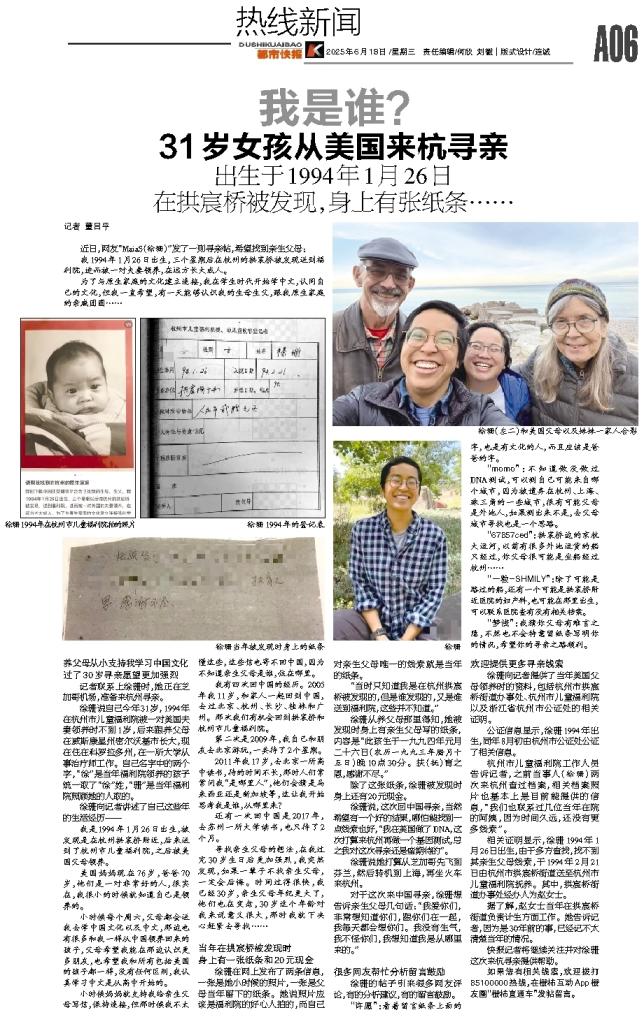 热线新闻
DUSHIKUAIBAO
都市快报
2025年6月18日/星期三 责任编辑/何欣 刘徽│版式设计/连城
A06
我是谁?
31岁女孩从美国来杭寻亲
出生于1994年1月26日
在拱宸桥被发现,身上有张纸条……
记者 董吕平
近日,网友“MaiaS(徐珊)”发了一则寻亲帖,希望找到亲生父母:
我1994年1月26日出生,三个星期后在杭州的拱宸桥被发现送到福
利院,进而被一对夫妻领养,在远方长大成人。
为了与原生家庭的文化建立连接,我在学生时代开始学中文,认同自
己的文化,但我一直希望,有一天能够认识我的生母生父,跟我原生家庭
的亲戚团圆……
徐珊(左二)和美国父母以及妹妹一家人合影
徐珊1994年在杭州市儿童福利院拍的照片
徐珊1994年的登记表
徐珊当年被发现时身上的纸条
徐珊
养父母从小支持我学习中国文化
过了30岁寻亲愿望更加强烈
记者联系上徐珊时,她正在芝
加哥机场,准备来杭州寻亲。
徐珊说自己今年31岁,1994年
在杭州市儿童福利院被一对美国夫
妻领养时不到1岁,后来跟养父母
在威斯康星州密尔沃基市长大,现
在住在科罗拉多州,在一所大学从
事治疗师工作。自己名字中的两个
字,“徐”是当年福利院领养的孩子
统一取了“徐”姓,“珊”是当年福利
院照顾她的人取的。
徐珊向记者讲述了自己这些年
的生活经历——
我是1994年1月26日出生,被
发现是在杭州拱宸桥附近,后来送
到了杭州市儿童福利院,之后被美
国父母领养。
美国妈妈现在76岁,爸爸70
岁,他们是一对非常好的人,很实
在,我很小的时候就知道自己是领
养的。
小时候每个周六,父母都会送
我去学中国文化以及中文,那边也
有很多和我一样从中国领养回来的
孩子,父母希望我能在那边认识更
多朋友,也希望我和所有包括美国
的孩子都一样,没有任何区别,我认
真学习中文是从高中开始的。
小时候妈妈就支持我给亲生父
母写信,保持连接,但那时候我不太
懂这些,这些信也寄不回中国,因为
不知道亲生父母是谁,住在哪里。
我有四次回中国的经历。2005
年我11岁,和家人一起回到中国,
去过北京、杭州、长沙、桂林和广
州。那次我们有机会回到拱宸桥和
杭州市儿童福利院。
第二次是2009年,我自己和朋
友去北京游玩,一共待了2个星期。
2011年我17岁,去北京一所高
中读书,待的时间不长,那时人们常
常问我“是哪里人”,他们会猜是马
来西亚还是新加坡等,这让我开始
思考我是谁,从哪里来?
还有一次回中国是2017年,
去苏州一所大学读书,也只待了2
个月。
寻找亲生父母的想法,在我过
完30岁生日后更加强烈,我突然
发现,如果一辈子不找亲生父母,
一定会后悔。时间过得很快,我
已经30岁,亲生父母年纪更大了,
他们也在变老,30岁这个年龄对
我来说意义很大,那时我就下决
心赶紧去寻找……
当年在拱宸桥被发现时
身上有一张纸条和20元现金
徐珊在网上发布了两条信息,
一张是她小时候的照片,一张是父
母当年留下的纸条。她说照片应
该是福利院的好心人拍的,而自己
对亲生父母唯一的线索就是当年
的纸条。
“当时只知道我是在杭州拱宸
桥被发现的,但是谁发现的,又是谁
送到福利院,这些并不知道。”
徐珊从养父母那里得知,他被
发现时身上有亲生父母写的纸条,
内容是“此孩生于一九九四年元月
二十六日(农历一九九三年腊月十
五日)晚10点30分。扶(抚)育之
恩,感谢不尽。”
除了这张纸条,徐珊被发现时
身上还有20元现金。
徐珊说,这次回中国寻亲,当然
希望有一个好的结果,哪怕能找到一
点线索也好,“我在美国做了DNA,这
次打算来杭州再做一个基因测试,总
之我对这次寻亲还是很期待的”。
徐珊说她打算从芝加哥先飞到
芬兰,然后转机到上海,再坐火车
来杭州。
对于这次来中国寻亲,徐珊想
告诉亲生父母几句话:“我爱你们,
非常想知道你们,跟你们在一起,
我每天都会想你们。我没有生气,
我不怪你们,我想知道我是从哪里
来的。”
很多网友帮忙分析留言鼓励
徐珊的帖子引来很多网友评
论,有的分析建议,有的留言鼓励。
“许愿”:看着留言纸条上面的
字,也是有文化的人,而且应该是爸
爸的字。
“momo”:不知道做没做过
DNA测试,可以测自己可能来自哪
个城市,因为被遗弃在杭州、上海、
长三角的一些城市,很有可能父母
是外地人,如果测出来不是,去父母
城市寻找也是一个思路。
“67857ced”:拱宸桥边的京杭
大运河,以前有很多外地运货的船
只经过,你父母很可能是坐船经过
杭州……
“一数-SHMILY”:除了可能是
路过的船,还有一个可能是拱宸桥附
近医院的妇产科,也可能在那里出生,
可以联系医院查有没有相关档案。
“梦悛”:我猜你父母有难言之
隐,不然也不会特意留纸条写明你
的情况,希望你的寻亲之路顺利。
欢迎提供更多寻亲线索
徐珊向记者提供了当年美国父
母领养时的资料,包括杭州市拱宸
桥街道办事处、杭州市儿童福利院
以及浙江省杭州市公证处的相关
证明。
公证信息显示,徐珊1994年出
生,同年8月初由杭州市公证处公证
了相关信息。
杭州市儿童福利院工作人员
告诉记者,之前当事人(徐珊)两
次来杭州查过档案,相关档案照
片也基本上是目前能提供的信
息,“我们也联系过几位当年在院
的阿姨,因为时间久远,还没有更
多线索”。
相关证明显示,徐珊1994年1
月26日出生,由于多方查找,找不到
其亲生父母线索,于1994年2月21
日由杭州市拱宸桥街道送至杭州市
儿童福利院抚养。其中,拱宸桥街
道办事处经办人为赵女士。
据了解,赵女士当年在拱宸桥
街道负责计生方面工作。她告诉记
者,因为是30年前的事,已经记不太
清楚当年的情况。
快报记者将继续关注并对徐珊
这次来杭寻亲提供帮助。
如果您有相关线索,欢迎拨打
85100000热线,在橙柿互动App橙
友圈“橙柿直通车”发帖留言。